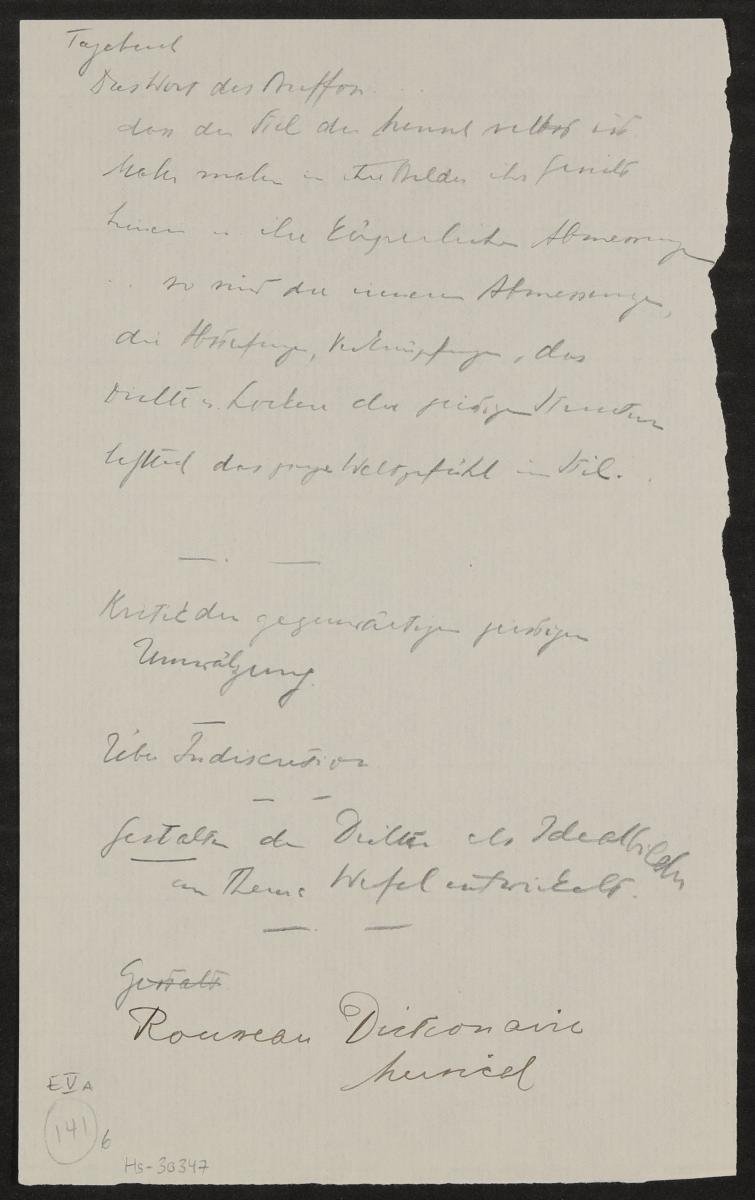 Tagebuch
Das Wort des Buffon
dass der Stil der Mensch selbst ist
Maler malen in ihre Bilder ihr Gesicht
hinein u ihre körperlichen Abmessungen
so sind die inneren Abmessungen,
die Abstufungen, Verknüpfungen, das
Dichte u. Lockere der geistigen Struktur
das ganze Weltgefühl im Stil.
Kritik der gegenwärtigen geistigen
Umwälzung.
Über Indiscretion
Gestalten der Dichter als Idealbilder
am Thema Werfel entwickelt.
Gestalt
Rousseau Dictionaire
Musical
E V A
141 b
Hs-30347